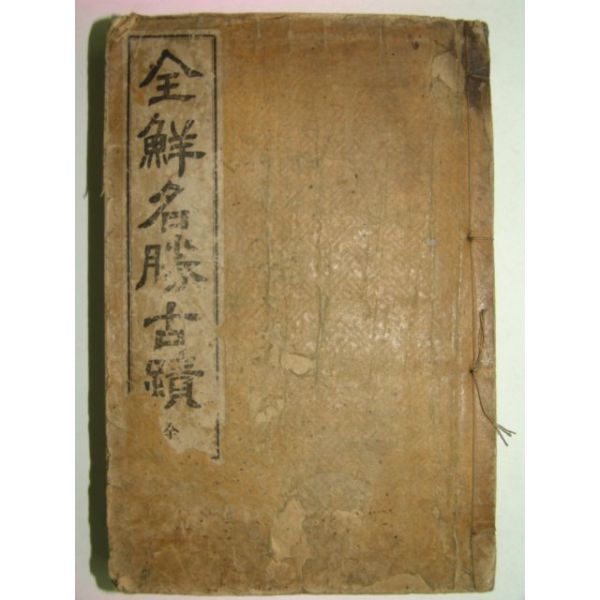 全鮮名勝古蹟
全